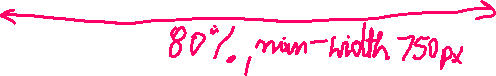 80%, min-width 750px